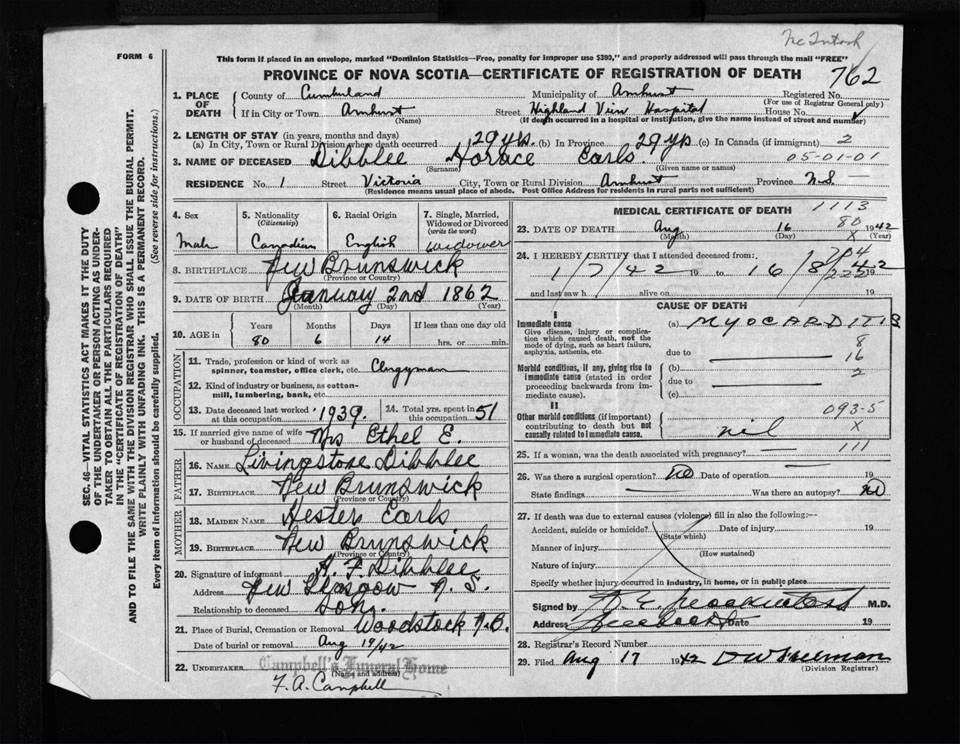 McIntosh
FORM 6
This form if placed in an envelope, marked "Dominion Statistics—Free, penalty for improper use $300," and properly addressed will pass through the mail "FREE"
PROVINCE OF NOVA SCOTIA—CERTIFICATE OF REGISTRATION OF DEATH 762
1. PLACE OF DEATH County of Cumberland Municipality of Amherst Registered No.
(For use of Registrar General only)
If in City or Town Amherst Street Highland View Hospital House No.
(Name) (If death occurred in a hospital or institution, give the name instead of street and number)
2. LENGTH OF STAY (in years, months and days)
(a) In City, Town or Rural Division where death occurred 29 yrs. (b) In Province 29 yrs (c) In Canada (if immigrant) 2
3. NAME OF DECEASED Dibblee Horace Earls 05-01-01
(Surname) (Given name or names)
RESIDENCE No. 1 Street Victoria City, Town or Rural Division Amherst Province N.S.
(Residence means usual place of abode. Post Office Address for residents in rural parts not sufficient)
4. Sex Male
5. Nationality (Citizenship) Canadian
6. Racial Origin English
7. Single, Married, Widowed or Divorced (write the word) Widower
8. BIRTHPLACE New Brunswick
(Province or Country)
9. DATE OF BIRTH January 2nd 1862
(Month) (Day) (Year)
10. AGE in Years Months Days If less than one day old
80 6 14 hrs. or min.
OCCUPATION
11. Trade, profession or kind of work as spinner, teamster, office clerk, etc. Clergyman
12. Kind of industry or business, as cotton-mill, lumbering, bank, etc.
13. Date deceased last worked at this occupation 1939. 14. Total yrs. spent in this occupation 51
15. If married give name of wife or husband of deceased Mrs Ethel E.
FATHER
16. NAME Livingstone Dibblee
17. BIRTHPLACE New Brunswick
(Province or Country)
MOTHER
18. MAIDEN NAME Hester Earls
19. BIRTHPLACE New Brunswick
(Province or Country)
20. Signature of informant H. F. Dibblee
Address New Glasgow N. S.
Relationship to deceased Son.
21. Place of Burial, Cremation or Removal Woodstock N.B.
Date of burial or removal Aug 19/42
22. UNDERTAKER Campbell's Funeral Home
(Name and address)
F. A. Campbell
MEDICAL CERTIFICATE OF DEATH 1113
80
23. DATE OF DEATH Aug 16 1942
(Month) (Day) X (Year)
24. I HEREBY CERTIFY that I attended deceased from:
1/7/42 19 to 16/8/42 19
and last saw h alive on 19
CAUSE OF DEATH
I
Immediate cause
Give disease, injury or complication which caused death, not the mode of dying, such as heart failure, asphyxia, asthenia, etc.
(a) MYOCARDITIS
8
due to 16
Morbid conditions, if any, giving rise to immediate cause (stated in order proceeding backwards from immediate cause).
(b) 2
due to
(c)
II
Other morbid conditions (if important) contributing to death but not causally related to immediate cause.
093-5
X
nil
25. If a woman, was the death associated with pregnancy? 111
26. Was there a surgical operation? no Date of operation 19
State findings Was there an autopsy? no
27. If death was due to external causes (violence) fill in also the following:—
Accident, suicide or homicide? Date of injury 19
(State which)
Manner of injury
(How sustained)
Nature of injury
Specify whether injury occurred in industry, in home, or in public place
Signed by M.D.
Address Date 19
28. Registrar's Record Number
29. Filed Aug 17 1942 D W Freeman
(Division Registrar)
SEC. 46—VITAL STATISTICS ACT MAKES IT THE DUTY OF THE UNDERTAKER OR PERSON ACTING AS UNDERTAKER TO OBTAIN ALL THE PARTICULARS REQUIRED IN THE "CERTIFICATE OF REGISTRATION OF DEATH"
AND TO FILE THE SAME WITH THE DIVISION REGISTRAR WHO SHALL ISSUE THE BURIAL PERMIT.
WRITE PLAINLY WITH UNFADING INK. THIS IS A PERMANENT RECORD.
Every item of information should be carefully supplied. (See reverse side for instructions.)